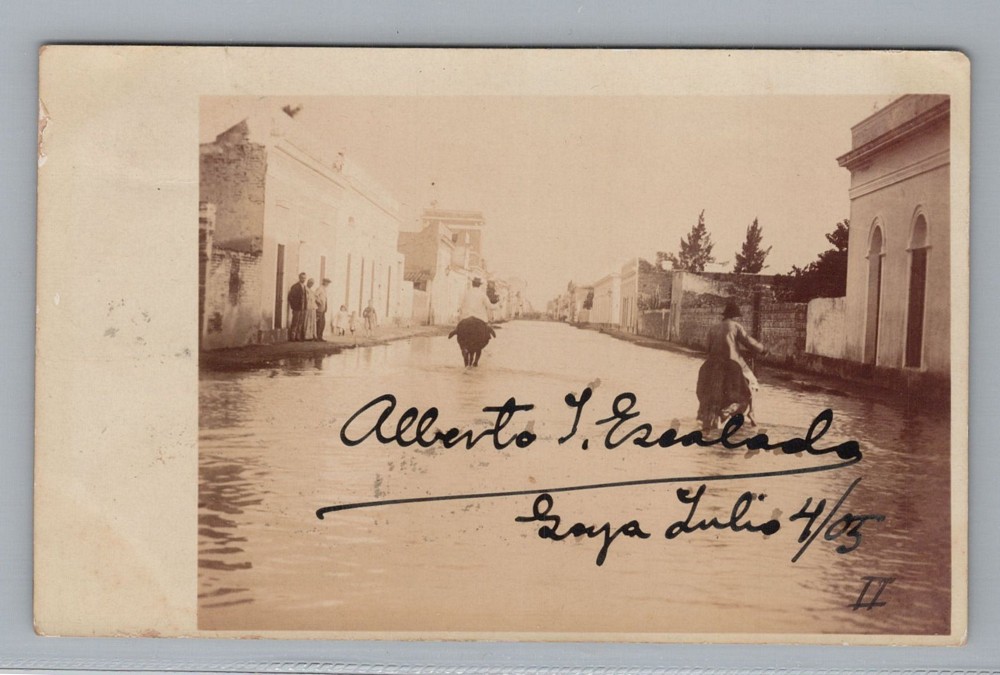 Alberto I. Escalada
Goya Julio 4/05
II